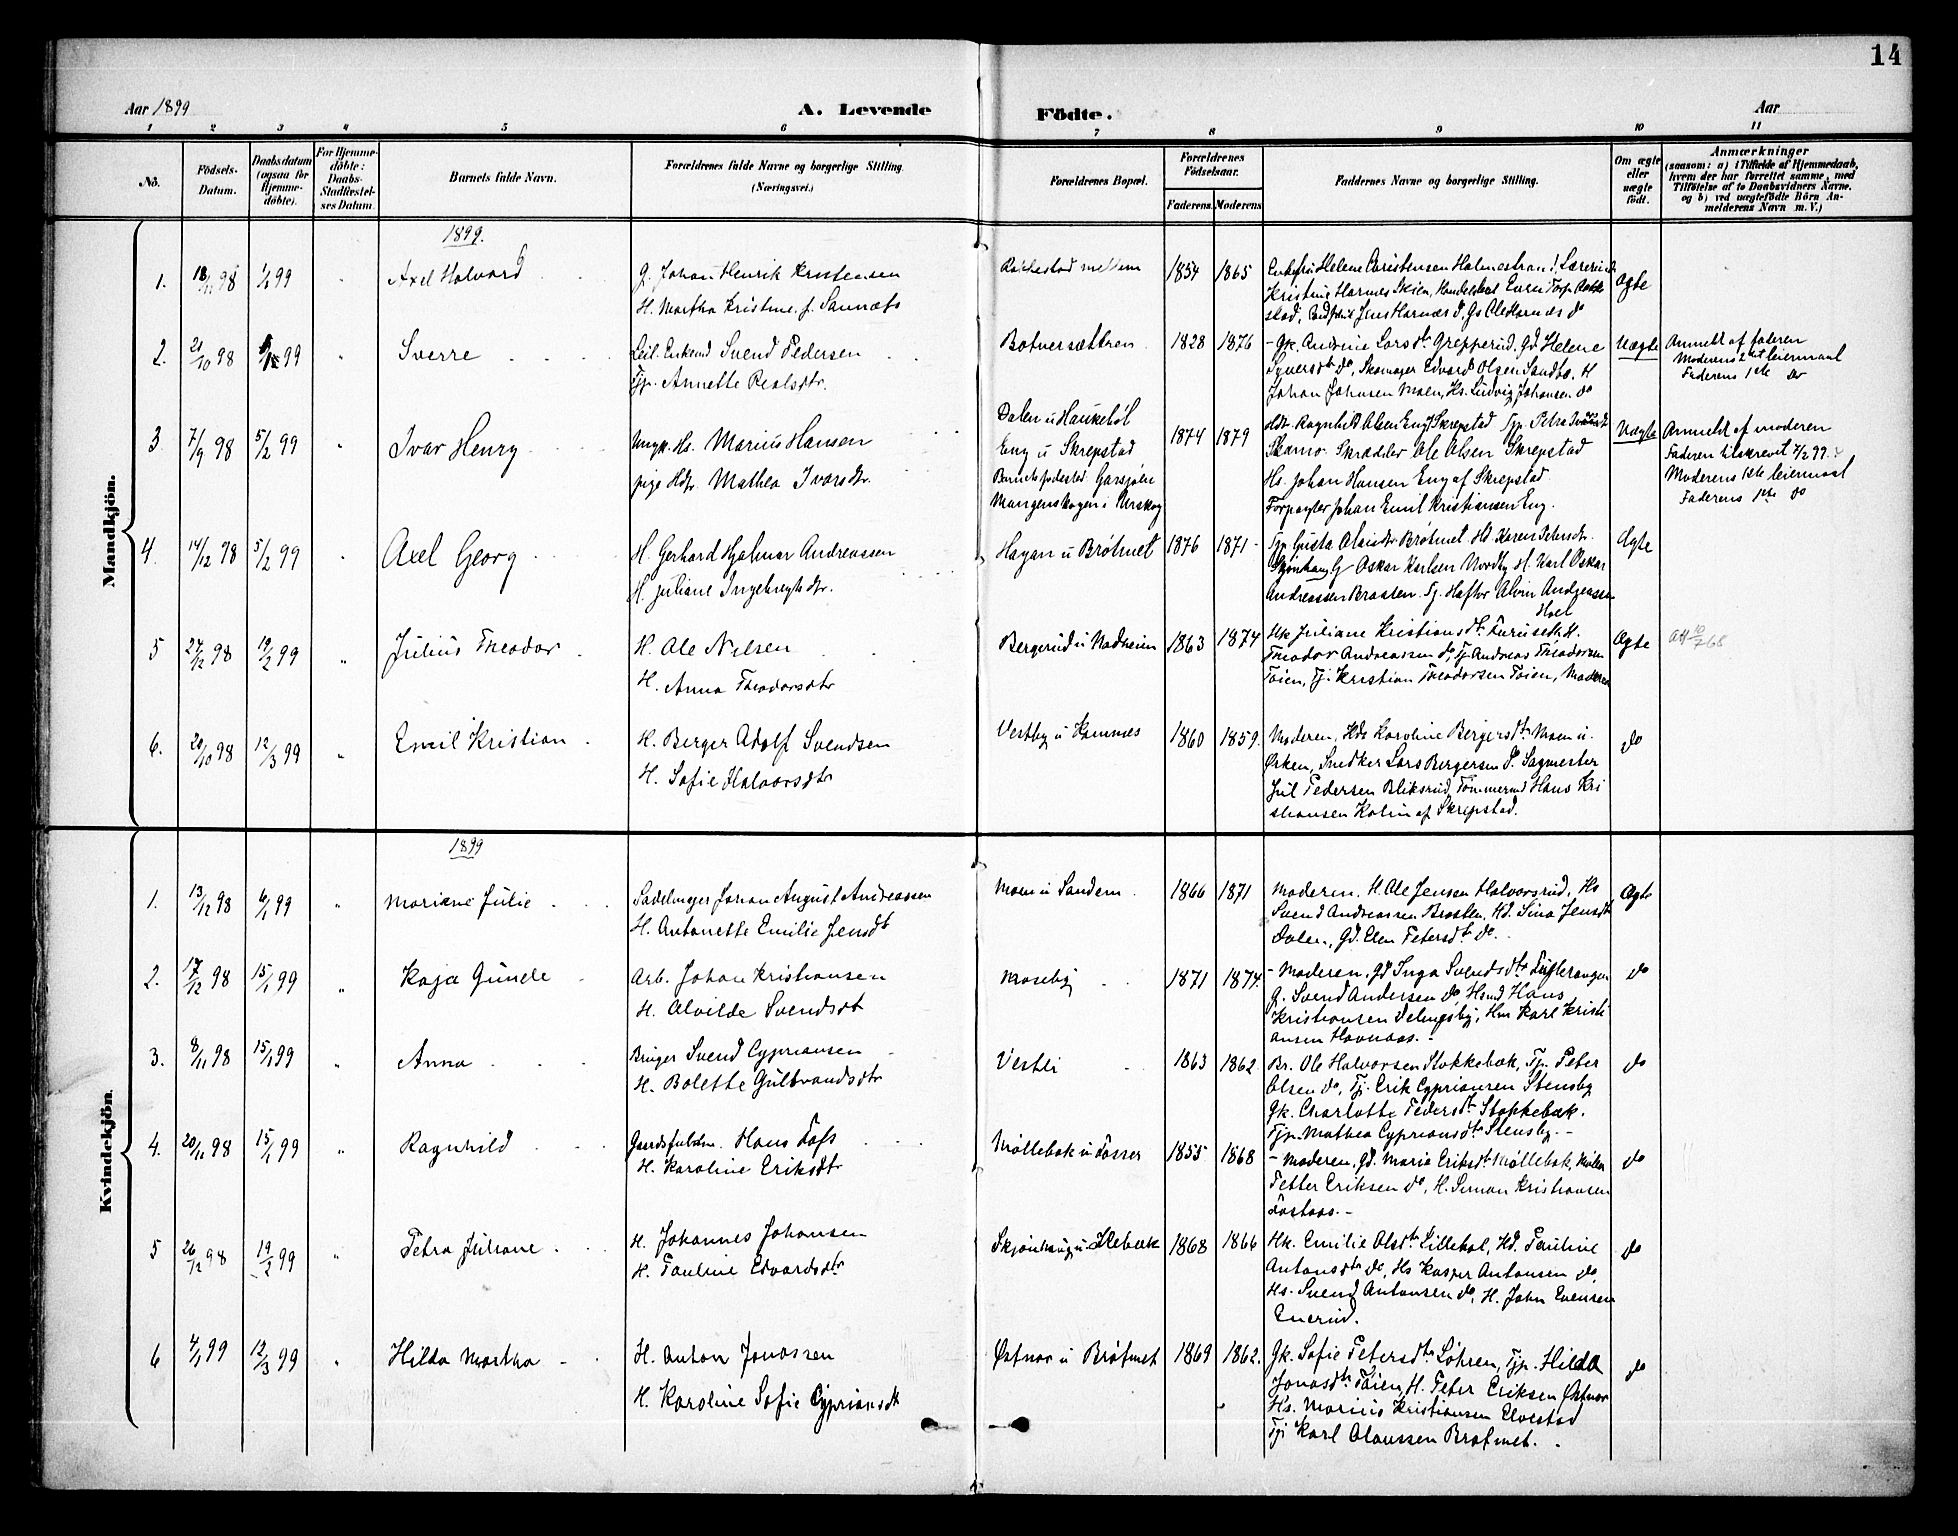 14
Aar 1899
A. Levende
Födte.
Aar
1 2 3 4 5 6 7 8 9 10 11
No.
Födsels-
Datum.
Daabsdatum
(ogsaa for
Hjemme-
döbte).
For Hjemme-
döbte:
Daabs-
Stadfæstel-
ses Datum.
Barnets fulde Navn.
Forældrenes fulde Navne og borgerlige Stilling.
(Næringsvei.)
Forældrenes Bopæl.
Forældrenes
Födselsaar.
Faderens. Moderens
Faddernes Navne og borgerlige Stilling.
Om ægte
eller
uægte
födt.
Anmærkninger
(saasom: a) i Tilfælde af Hjemmedaab,
hvem der har forrettet samme, med
Tilföielse af to Daabsvidners Navne.
og b) ved uægtefödte Börn An-
melderens Navn m. V.)
Mandkjön.
1899.
1. 18/11 98 1/1 99 " Axel Halvard
G. Johan Henrik Kristensen
H. Martha Kristine f. Sannæs
Rakkestad mellem
1854 1865
Enkefru Helene Christensen Holmestrand, Lærerinde
Kristine Harnæs Skien, Handelsbet Even Torp Rakke
stad, Jens Harnæs do, Gs Ole Harnæs do
Ægte
2. 21/10 98 99 " Sverre
Leil. Enkemd Svend Pedersen
Tjp. Annette Realsdtr.
Botnersættren
1828 1876
- Gk. Andrine Larsdtr Grepperud, Gd Helene
Syversdtr do, Skomager Edvard Olsen Sandbo, H
Johan Johnsen Moen, Hs. Ludvig Johansen do
Uægte
Anmeldt af faderen
Moderens 2det leiermaal
Faderens 1ste do
3 7/9 98 5/2 99 " Ivar Henry
Ungk. Hs. Marius Hansen
pige Hdtr. Mathea Ivarsdtr.
Dalen u Haukebøl
Eng u Skrepstad
Barnets fødested Gassjøen
Mangenskogen i Urskog
1874 1879
Hdtr. Ragnhild Olsen Eng Skrepstad Tjp. Petra Ivarsdtr
Skamo Skrædder Ole Olsen Skrepstad
Hs. Johan Hansen Eng af Skrepstad
Forpagter Johan Emil Kristiansen Eng.
Uægte
Anmeldt af moderen
Faderen tilskrevet 7/2 99
Moderens 1ste leiermaal
Faderens 1ste do
4. 14/12 98 5/2 99 " Axel Georg
H. Gerhard Hjalmar Andreassen
H. Juliane Ingebregtsdtr.
Hagan u Brøtmet
1876 1871
Tjp. Gusta Olaisdtr Brøtmet Hd Karen Pehrsdtr.
Skjønhaug G Oskar Karlsen Nordby H. Karl Oskar
Andreassen Braaten. Tj. Haftor Alvin Andreassen
Hoel
Ægte
5 27/12 98 19/2 99 " Julius Theodor
H. Ole Nilsen
H. Anna Theodorsdtr
Bergerud u Nadheim
1863 1874
Hk Juliane Kristiansdtr Furuseth, H.
Theodor Andreassen do, Tj. Andreas Theodorsen
Toien, Tj. Kristian Theodorsen Toien, Moderen
Ægte
Att 10/7 68
6. 20/10 98 12/3 99 " Emil Kristian
H. Berger Adolf Svendsen
H. Sofie Halvorsdtr
Vestby u Kamnes
1860 1859.
Moderen, Hds Karoline Bergersdtr Moen u.
Ørken, Snedker Lars Bergersen do. Sagmester
Jul Pedersen Bliksrud, Tømmermd Hans Kri
stiansen Kolin af Skrepstad.
do
Kvindekjön.
1899
1. 13/12 98 6/1 99 " Mariane Julie
Sadelmager Johan August Andreassen
H. Antonette Emilie Jensdtr
Moen u Sandem
1866 1871
Moderen, H Ole Jensen Halvorsrud, Hs
Svend Andreassen Braaten, Hd. Sina Jensdtr
Dalen, Gd. Elen Petersdtr do
Ægte
2. 17/12 98 15/1 99 " Kaja Gunde
Arb. Johan Kristiansen
H. Alvilde Svendsdtr
Moseby
1871 1874.
- Moderen, Gd Inga Svendsdtr
G. Svend Andersen do, Hsmd Hans
Kristiansen Delingsby, Hm Karl Kristi
ansen Havnaas.
do
3. 8/11 98 15/1 99 " Anna
Bruger Svend Cypriansen
H. Bolette Gulbrandsdtr
Vestli
1863 1862.
Br. Ole Halvorsen Stokkebæk, Tjp. Peter
Olsen do, Tj. Erik Cypriansen Stensby
Gk. Charlotte Pedersdtr Stokkebæk.
Tjp. Mathea Cypriansdtr Stensby.
do
4. 20/11 98 15/1 99 " Ragnhild
Gaardsfuldm. Hans Foss
H. Karoline Eriksdtr
Møllebæk u Fosser
1855 1868
- Moderen, Gd. Marie Eriksdtr Møllebæk,
Petter Eriksen do, H. Simon Kristiansen
Fostaas.
do
5 26/12 98 19/2 99 " Petra Juliane
H. Johannes Johansen
H. Pauline Edvardsdtr
Skjønhaug u. Slebæk
1868 1866
Hk. Emilie Olsdtr Lillebøl, Hd. Pauline
Antonsdtr do, Hs Kasper Antonsen do
Hs. Svend Antonsen do, H. John Evensen
Enerud.
do
6 4/1 99 12/3 99 " Hilda Martha
H. Anton Jonassen
H. Karoline Sofie Cypriansdtr
Østnor u Brøtmet
1869 1862.
Gk. Sofie Petersdtr Løhren, Tjp. Hilda
Jonasdtr Toien, H. Peter Eriksen Østnor
Hs. Marius Kristiansen Elvestad
Tj. Karl Olaussen Brøtmet.
do